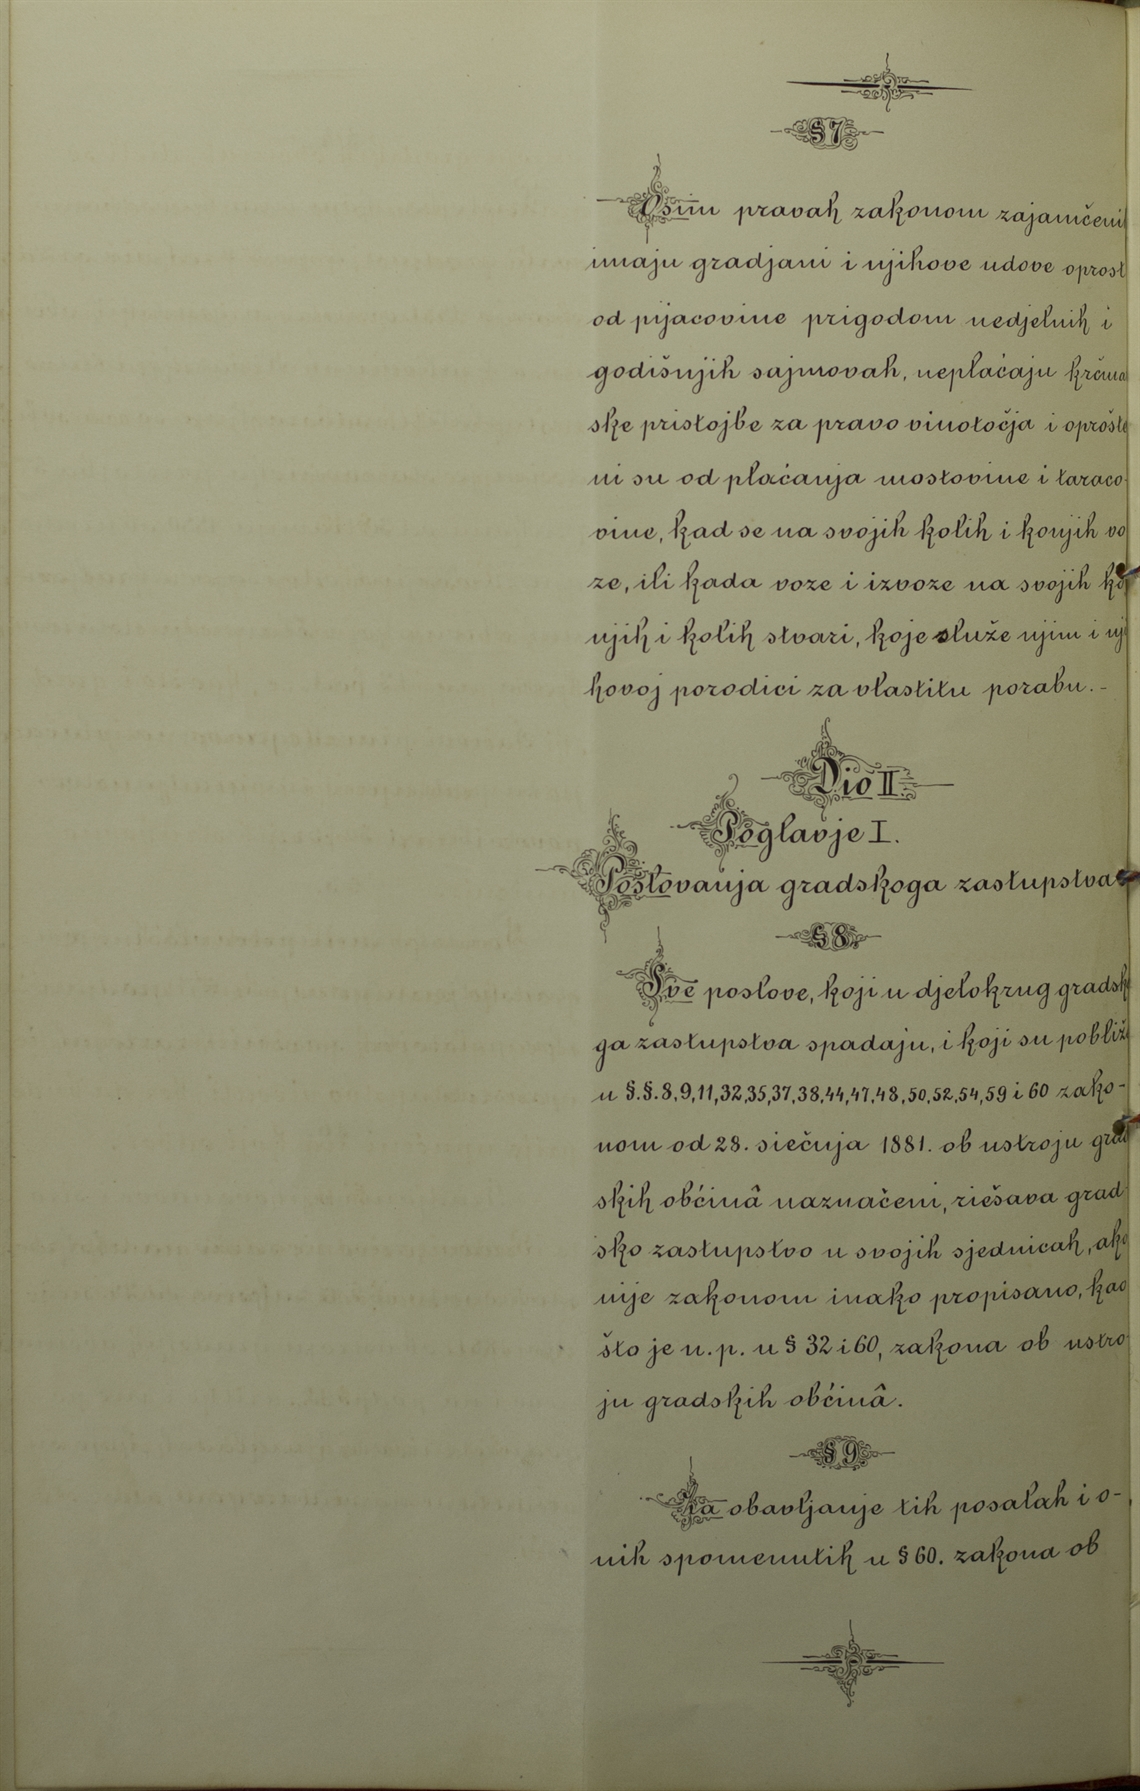 § 7
Osim pravah zakonom zajamčeni
imaju gradjani i njihove udove oprost
od pijacovine prigodom nedjelnih i
godišnjih sajmovah, neplaćaju krčma
ske pristojbe za pravo vinotočja i oprošte
ni su od plaćanja mostovine i taraco-
vine, kad se na svojih kolih i konjih vo
ze, ili kada voze i izvoze na svojih ko
njih i kolih stvari, koje služe njim i nji
hovoj porodici za vlastitu porabu.-
Dio II.
Poglavje I.
Poslovanja gradskoga zastupstva
§ 8.
Sve poslove, koji u djelokrug gradsk
ga zastupstva spadaju, i koji su pobliž
u §.§. 8, 9, 11, 32, 35, 37, 38, 44, 47, 48, 50, 52, 54, 59 i 60 zako-
nom od 28. siečnja 1881. ob ustroju grad
skih občinâ naznačeni, riešava grad
sko zastupstvo u svojih sjednicah, ako
nije zakonom inako propisano, kao
što je n. p. u § 32 i 60, zakona ob ustro
ju gradskih občinâ.
§ 9
Za obavljanje tih posalah i o-
nih spomenutih u § 60. zakona ob